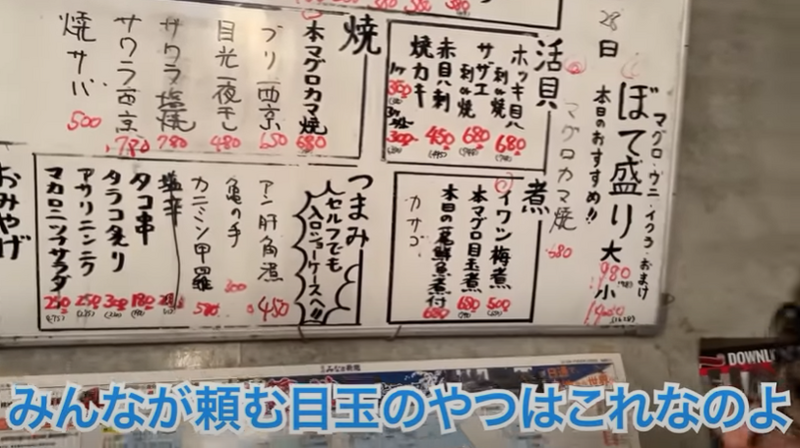 28日
マグロ・ウニ・イクラ・おまけ
ぼて盛り
大 980
小
本日のおすすめ!!
マグロカマ焼 680
活貝
ホッキ貝 刺or焼 680
サザエ 刺or焼 680
赤貝刺 450
焼カキ 1ヶ 350
焼
本マグロカマ焼 680
ブリ西京 650
目光一夜干 480
サワラ塩焼 780
サワラ西京 780
焼サバ 500
煮
イワシ梅煮 500
本マグロ目玉煮 680
本日の鮮魚煮付 680
カサゴ
つまみ
セルフでも
入口ショーケースへ!!
アン肝角煮 450
亀の手 300
カニミソ甲羅 500
塩辛
タコ串 180
タラコ炙り 300
アサリニンニク 250
マカロニツナサラダ 250
おみやげ
DOWNL
みんなが頼む目玉のやつはこれなのよ